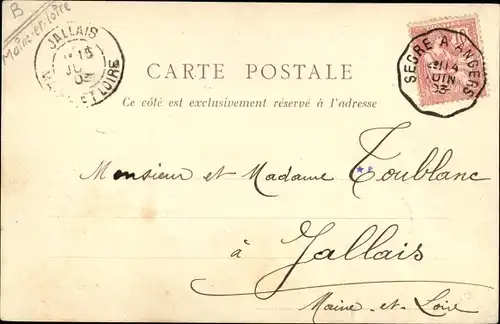 B
Maine-et-Loire
JALLAIS
15
03
MAINE ET LOIRE
10
SEGRE A ANGERS
14
JUIN
03
CARTE POSTALE
Ce côté est exclusivement réservé à l'adresse
Monsieur et Madame Toublanc
à Jallais
Maine-et-Loire